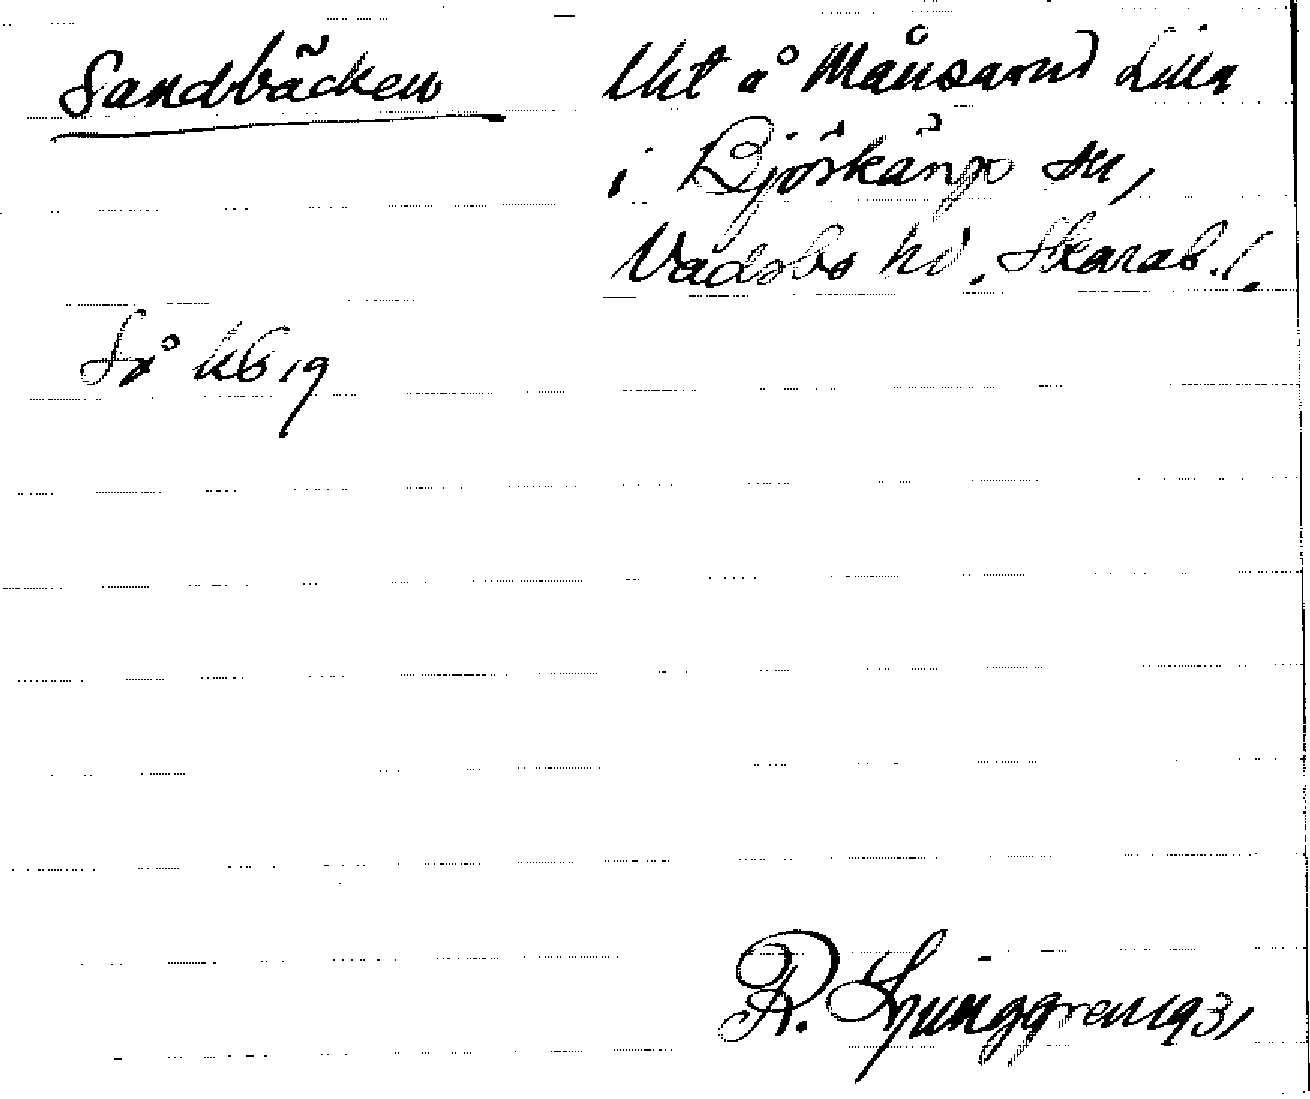 Sandbäcken
Ut å Månsarud Lilla
i Björkängs sn,
Vadsbo hd. Skarab. l.
Sö kb 19
R. Ljunggren 1931